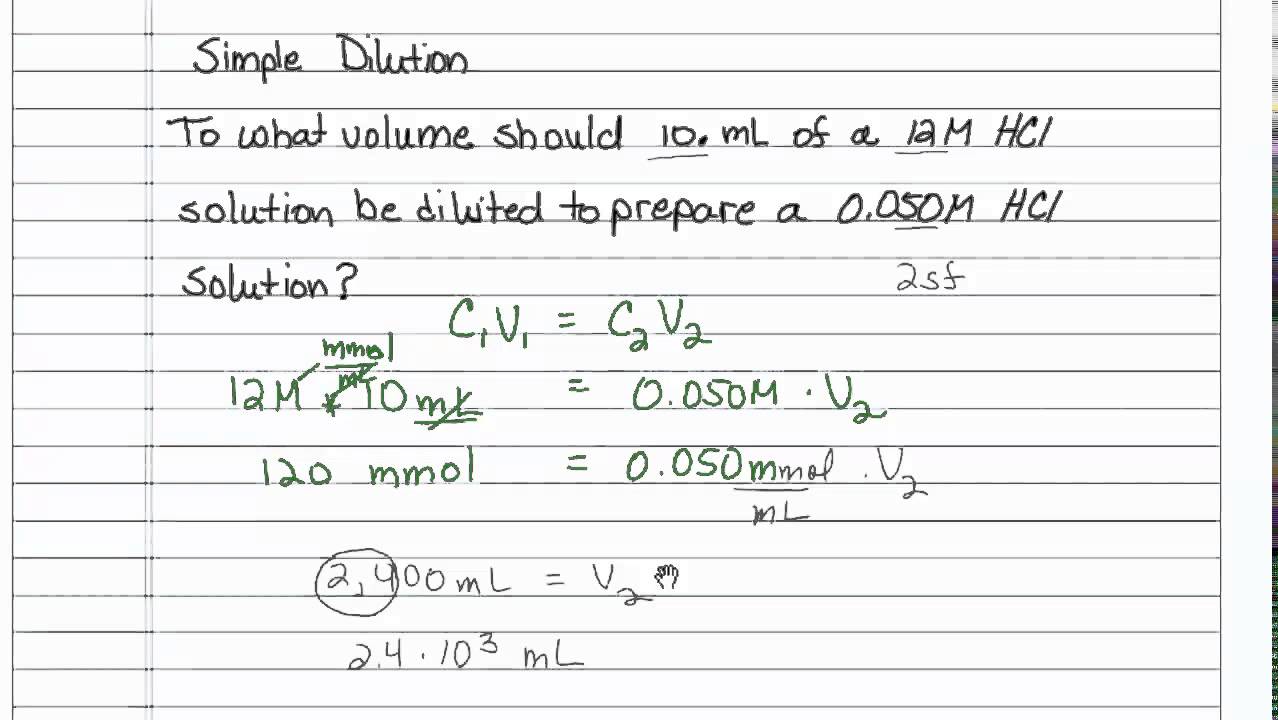 Simple Dilution
To what volume should 10. mL of a 12M HCl
solution be diluted to prepare a 0.050M HCl
solution?
2sf
C₁V₁ = C₂V₂
mmol
mL
12M * 10 mL = 0.050M · V₂
120 mmol = 0.050 mmol · V₂
mL
2,400 mL = V₂
2.4 · 10³ mL